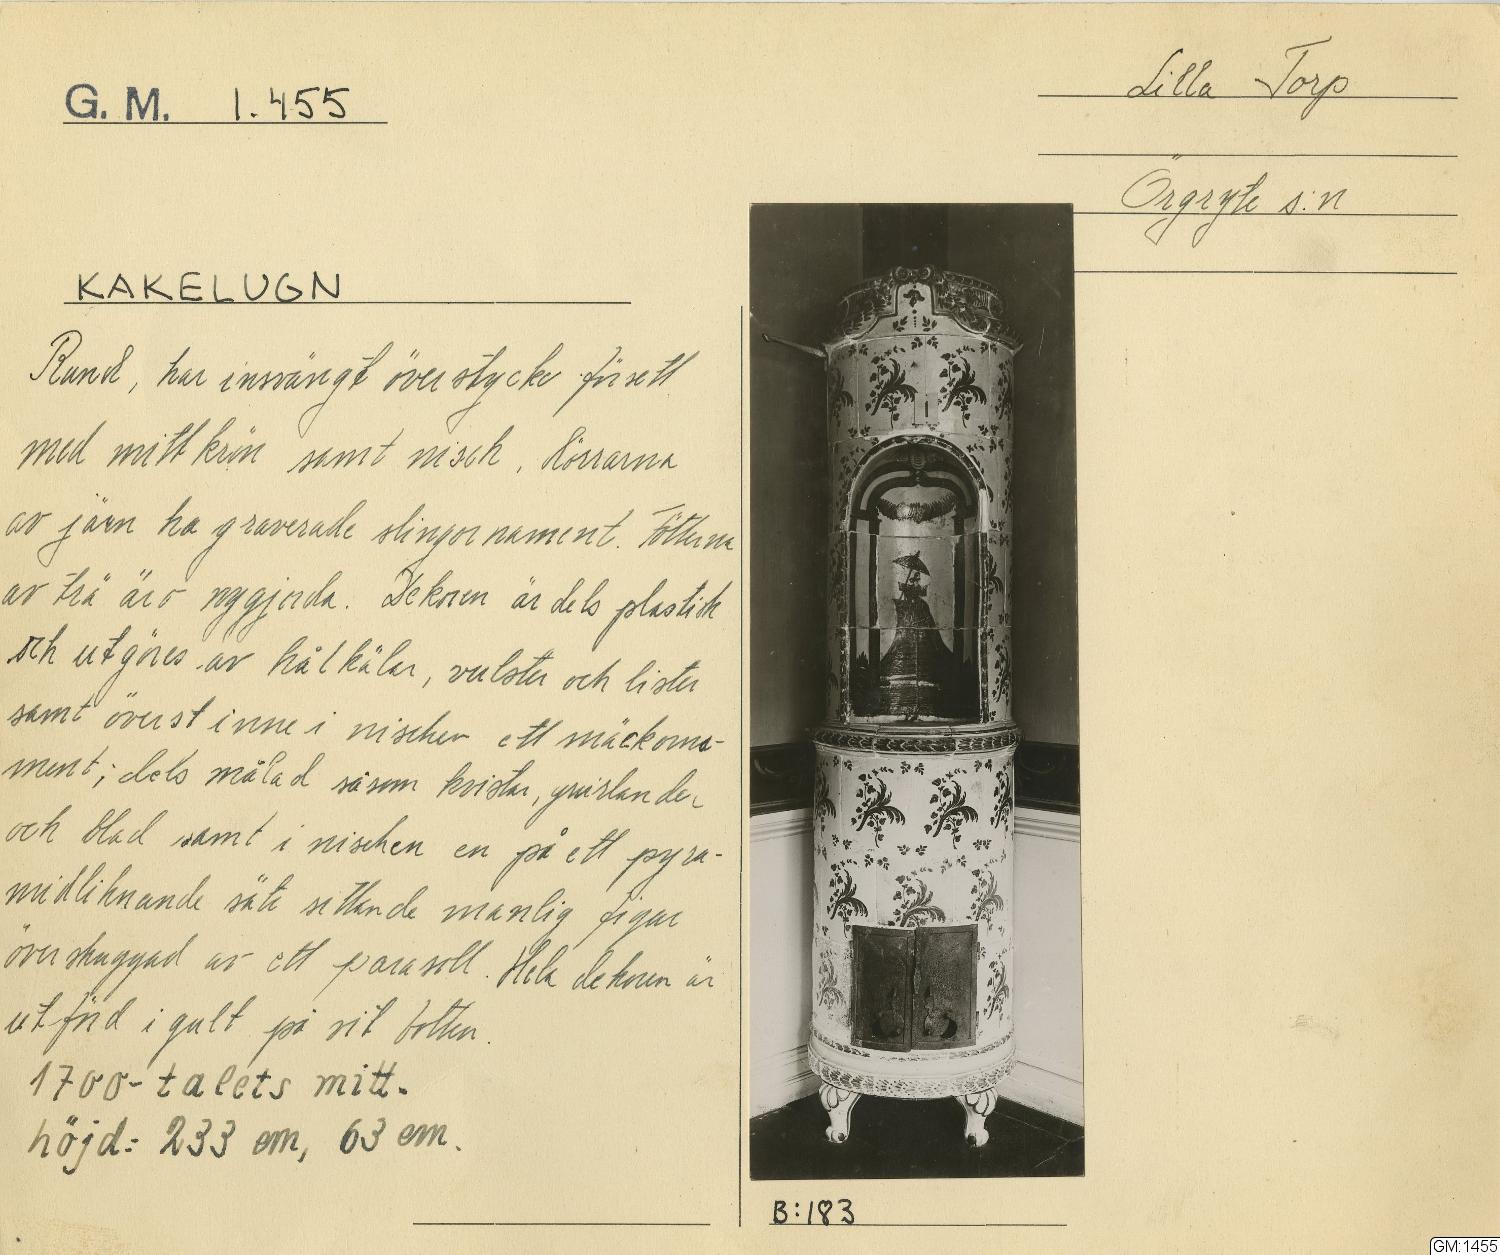 G. M. 1.455
Lilla Torp
Örgryte s:n
KAKELUGN
Rund, har insvängt överstycke försett
med mittkrön samt nisch. Dörrarna
av järn ha graverade slingornament. Fötterna
av trä äro nygjorda. Dekoren är dels plastisk
och utgöres av hålkälar, vulster och lister
samt överst inne i nischen ett snäckorna-
ment; dels målad såsom kvistar, guirlander
och blad samt i nischen en på ett pyra-
midliknande säte sittande manlig figur
överskuggad av ett parasoll. Hela dekoren är
utförd i gult på vit botten.
1700-talets mitt.
höjd: 233 cm, 63 cm.
B:183
GM:1455